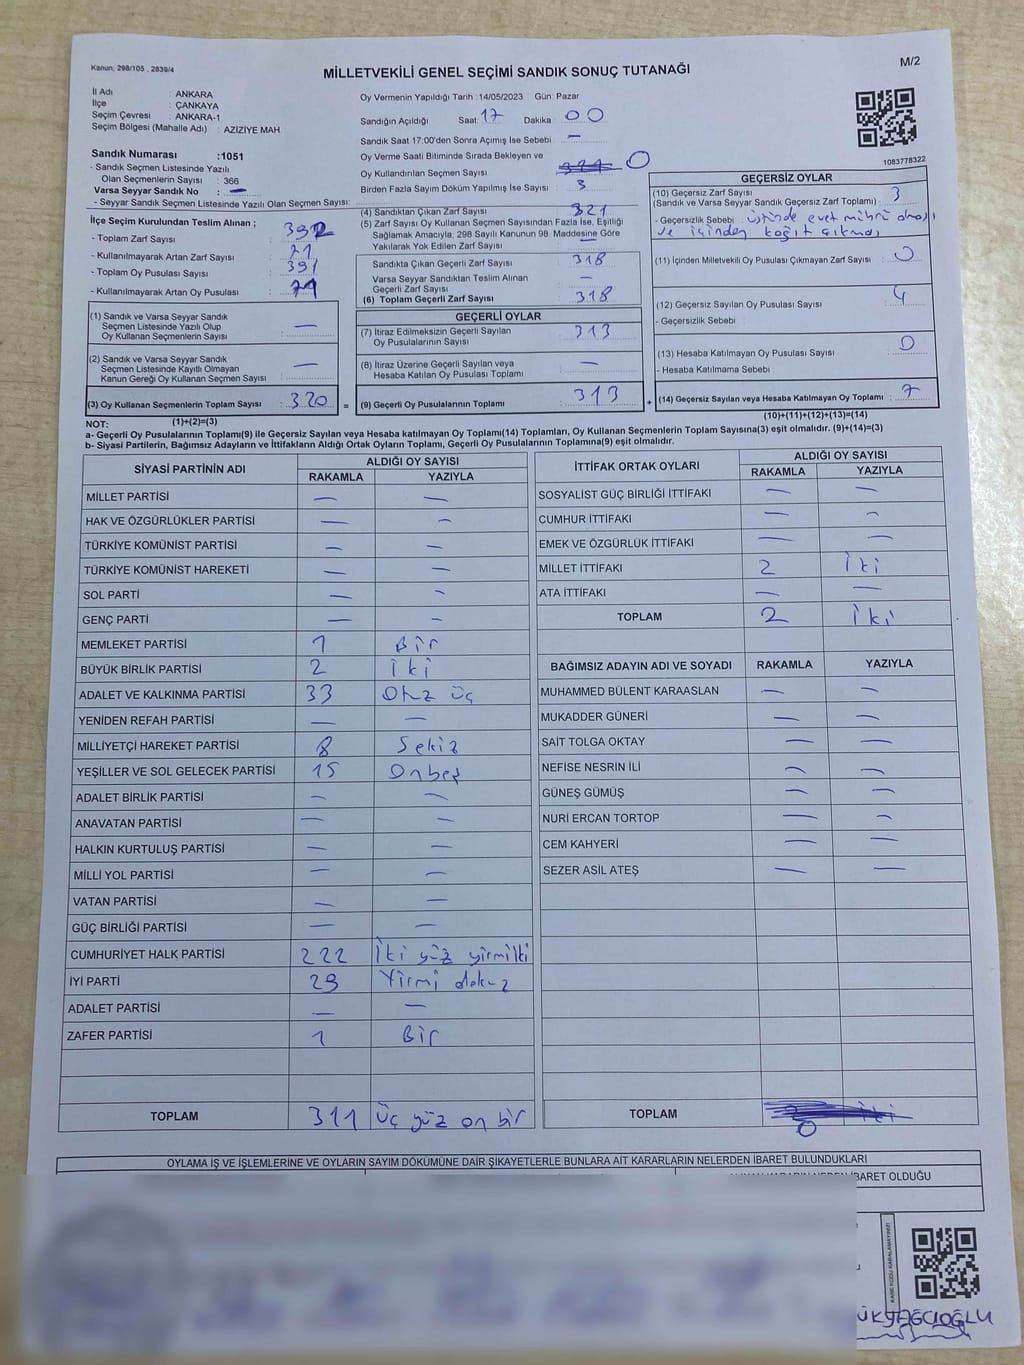 Kanun; 298/105 , 2839/4
M/2
MİLLETVEKİLİ GENEL SEÇİMİ SANDIK SONUÇ TUTANAĞI
İl Adı : ANKARA
İlçe : ÇANKAYA
Seçim Çevresi : ANKARA-1
Seçim Bölgesi (Mahalle Adı) : AZİZİYE MAH
Sandık Numarası :1051
- Sandık Seçmen Listesinde Yazılı
Olan Seçmenlerin Sayısı : 366
Varsa Seyyar Sandık No : —
- Seyyar Sandık Seçmen Listesinde Yazılı Olan Seçmen Sayısı:
Oy Vermenin Yapıldığı Tarih :14/05/2023 Gün: Pazar
Sandığın Açıldığı Saat: 17 Dakika : 00
Sandık Saat 17:00'den Sonra Açımış İse Sebebi : —
Oy Verme Saati Bitiminde Sırada Bekleyen ve
Oy Kullandırılan Seçmen Sayısı : 0
Birden Fazla Sayım Döküm Yapılmış İse Sayısı : 3
1083778322
İlçe Seçim Kurulundan Teslim Alınan ;
- Toplam Zarf Sayısı : 392
- Kullanılmayarak Artan Zarf Sayısı : 71
- Toplam Oy Pusulası Sayısı : 391
- Kullanılmayarak Artan Oy Pusulası : 71
(1) Sandık ve Varsa Seyyar Sandık
Seçmen Listesinde Yazılı Olup
Oy Kullanan Seçmenlerin Sayısı : —
(2) Sandık ve Varsa Seyyar Sandık
Seçmen Listesinde Kayıtlı Olmayan
Kanun Gereği Oy Kullanan Seçmen Sayısı : —
(3) Oy Kullanan Seçmenlerin Toplam Sayısı : 320 =
(4) Sandıktan Çıkan Zarf Sayısı : 321
(5) Zarf Sayısı Oy Kullanan Seçmen Sayısından Fazla İse, Eşitliği
Sağlamak Amacıyla, 298 Sayılı Kanunun 98. Maddesine Göre
Yakılarak Yok Edilen Zarf Sayısı : —
Sandıkta Çıkan Geçerli Zarf Sayısı : 318
Varsa Seyyar Sandıktan Teslim Alınan
Geçerli Zarf Sayısı : —
(6) Toplam Geçerli Zarf Sayısı : 318
GEÇERLİ OYLAR
(7) İtiraz Edilmeksizin Geçerli Sayılan
Oy Pusulalarının Sayısı : 313
(8) İtiraz Üzerine Geçerli Sayılan veya
Hesaba Katılan Oy Pusulası Toplamı : —
(9) Geçerli Oy Pusulalarının Toplamı : 313 +
GEÇERSİZ OYLAR
(10) Geçersiz Zarf Sayısı : 3
(Sandık ve Varsa Seyyar Sandık Geçersiz Zarf Toplamı)
- Geçersizlik Sebebi : üstünde evet mührü olması
ve içinden kağıt çıkması
(11) İçinden Milletvekili Oy Pusulası Çıkmayan Zarf Sayısı : 0
(12) Geçersiz Sayılan Oy Pusulası Sayısı : 4
- Geçersizlik Sebebi :
(13) Hesaba Katılmayan Oy Pusulası Sayısı : 0
- Hesaba Katılmama Sebebi :
(14) Geçersiz Sayılan veya Hesaba Katılmayan Oy Toplamı : 7
NOT: (1)+(2)=(3)
(10)+(11)+(12)+(13)=(14)
a- Geçerli Oy Pusulalarının Toplamı(9) ile Geçersiz Sayılan veya Hesaba katılmayan Oy Toplamı(14) Toplamları, Oy Kullanan Seçmenlerin Toplam Sayısına(3) eşit olmalıdır. (9)+(14)=(3)
b- Siyasi Partilerin, Bağımsız Adayların ve İttifakların Aldığı Ortak Oyların Toplamı, Geçerli Oy Pusulalarının Toplamına(9) eşit olmalıdır.
SİYASİ PARTİNİN ADI ALDIĞI OY SAYISI
RAKAMLA YAZIYLA
MİLLET PARTİSİ — —
HAK VE ÖZGÜRLÜKLER PARTİSİ — —
TÜRKİYE KOMÜNİST PARTİSİ — —
TÜRKİYE KOMÜNİST HAREKETİ — —
SOL PARTİ — —
GENÇ PARTİ — —
MEMLEKET PARTİSİ 1 Bir
BÜYÜK BİRLİK PARTİSİ 2 İki
ADALET VE KALKINMA PARTİSİ 33 Otuz üç
YENİDEN REFAH PARTİSİ — —
MİLLİYETÇİ HAREKET PARTİSİ 8 Sekiz
YEŞİLLER VE SOL GELECEK PARTİSİ 15 Onbeş
ADALET BİRLİK PARTİSİ — —
ANAVATAN PARTİSİ — —
HALKIN KURTULUŞ PARTİSİ — —
MİLLİ YOL PARTİSİ — —
VATAN PARTİSİ — —
GÜÇ BİRLİĞİ PARTİSİ — —
CUMHURİYET HALK PARTİSİ 222 İki yüz yirmiiki
İYİ PARTİ 29 Yirmi dokuz
ADALET PARTİSİ — —
ZAFER PARTİSİ 1 Bir
TOPLAM 311 Üç yüz on bir
İTTİFAK ORTAK OYLARI ALDIĞI OY SAYISI
RAKAMLA YAZIYLA
SOSYALİST GÜÇ BİRLİĞİ İTTİFAKI — —
CUMHUR İTTİFAKI — —
EMEK VE ÖZGÜRLÜK İTTİFAKI — —
MİLLET İTTİFAKI 2 İki
ATA İTTİFAKI — —
TOPLAM 2 İki
BAĞIMSIZ ADAYIN ADI VE SOYADI RAKAMLA YAZIYLA
MUHAMMED BÜLENT KARAASLAN — —
MUKADDER GÜNERİ — —
SAİT TOLGA OKTAY — —
NEFİSE NESRİN İLİ — —
GÜNEŞ GÜMÜŞ — —
NURİ ERCAN TORTOP — —
CEM KAHYERİ — —
SEZER ASİL ATEŞ — —
TOPLAM 0
OYLAMA İŞ VE İŞLEMLERİNE VE OYLARIN SAYIM DÖKÜMÜNE DAİR ŞİKAYETLERLE BUNLARA AİT KARARLARIN NELERDEN İBARET BULUNDUKLARI
İBARET OLDUĞU